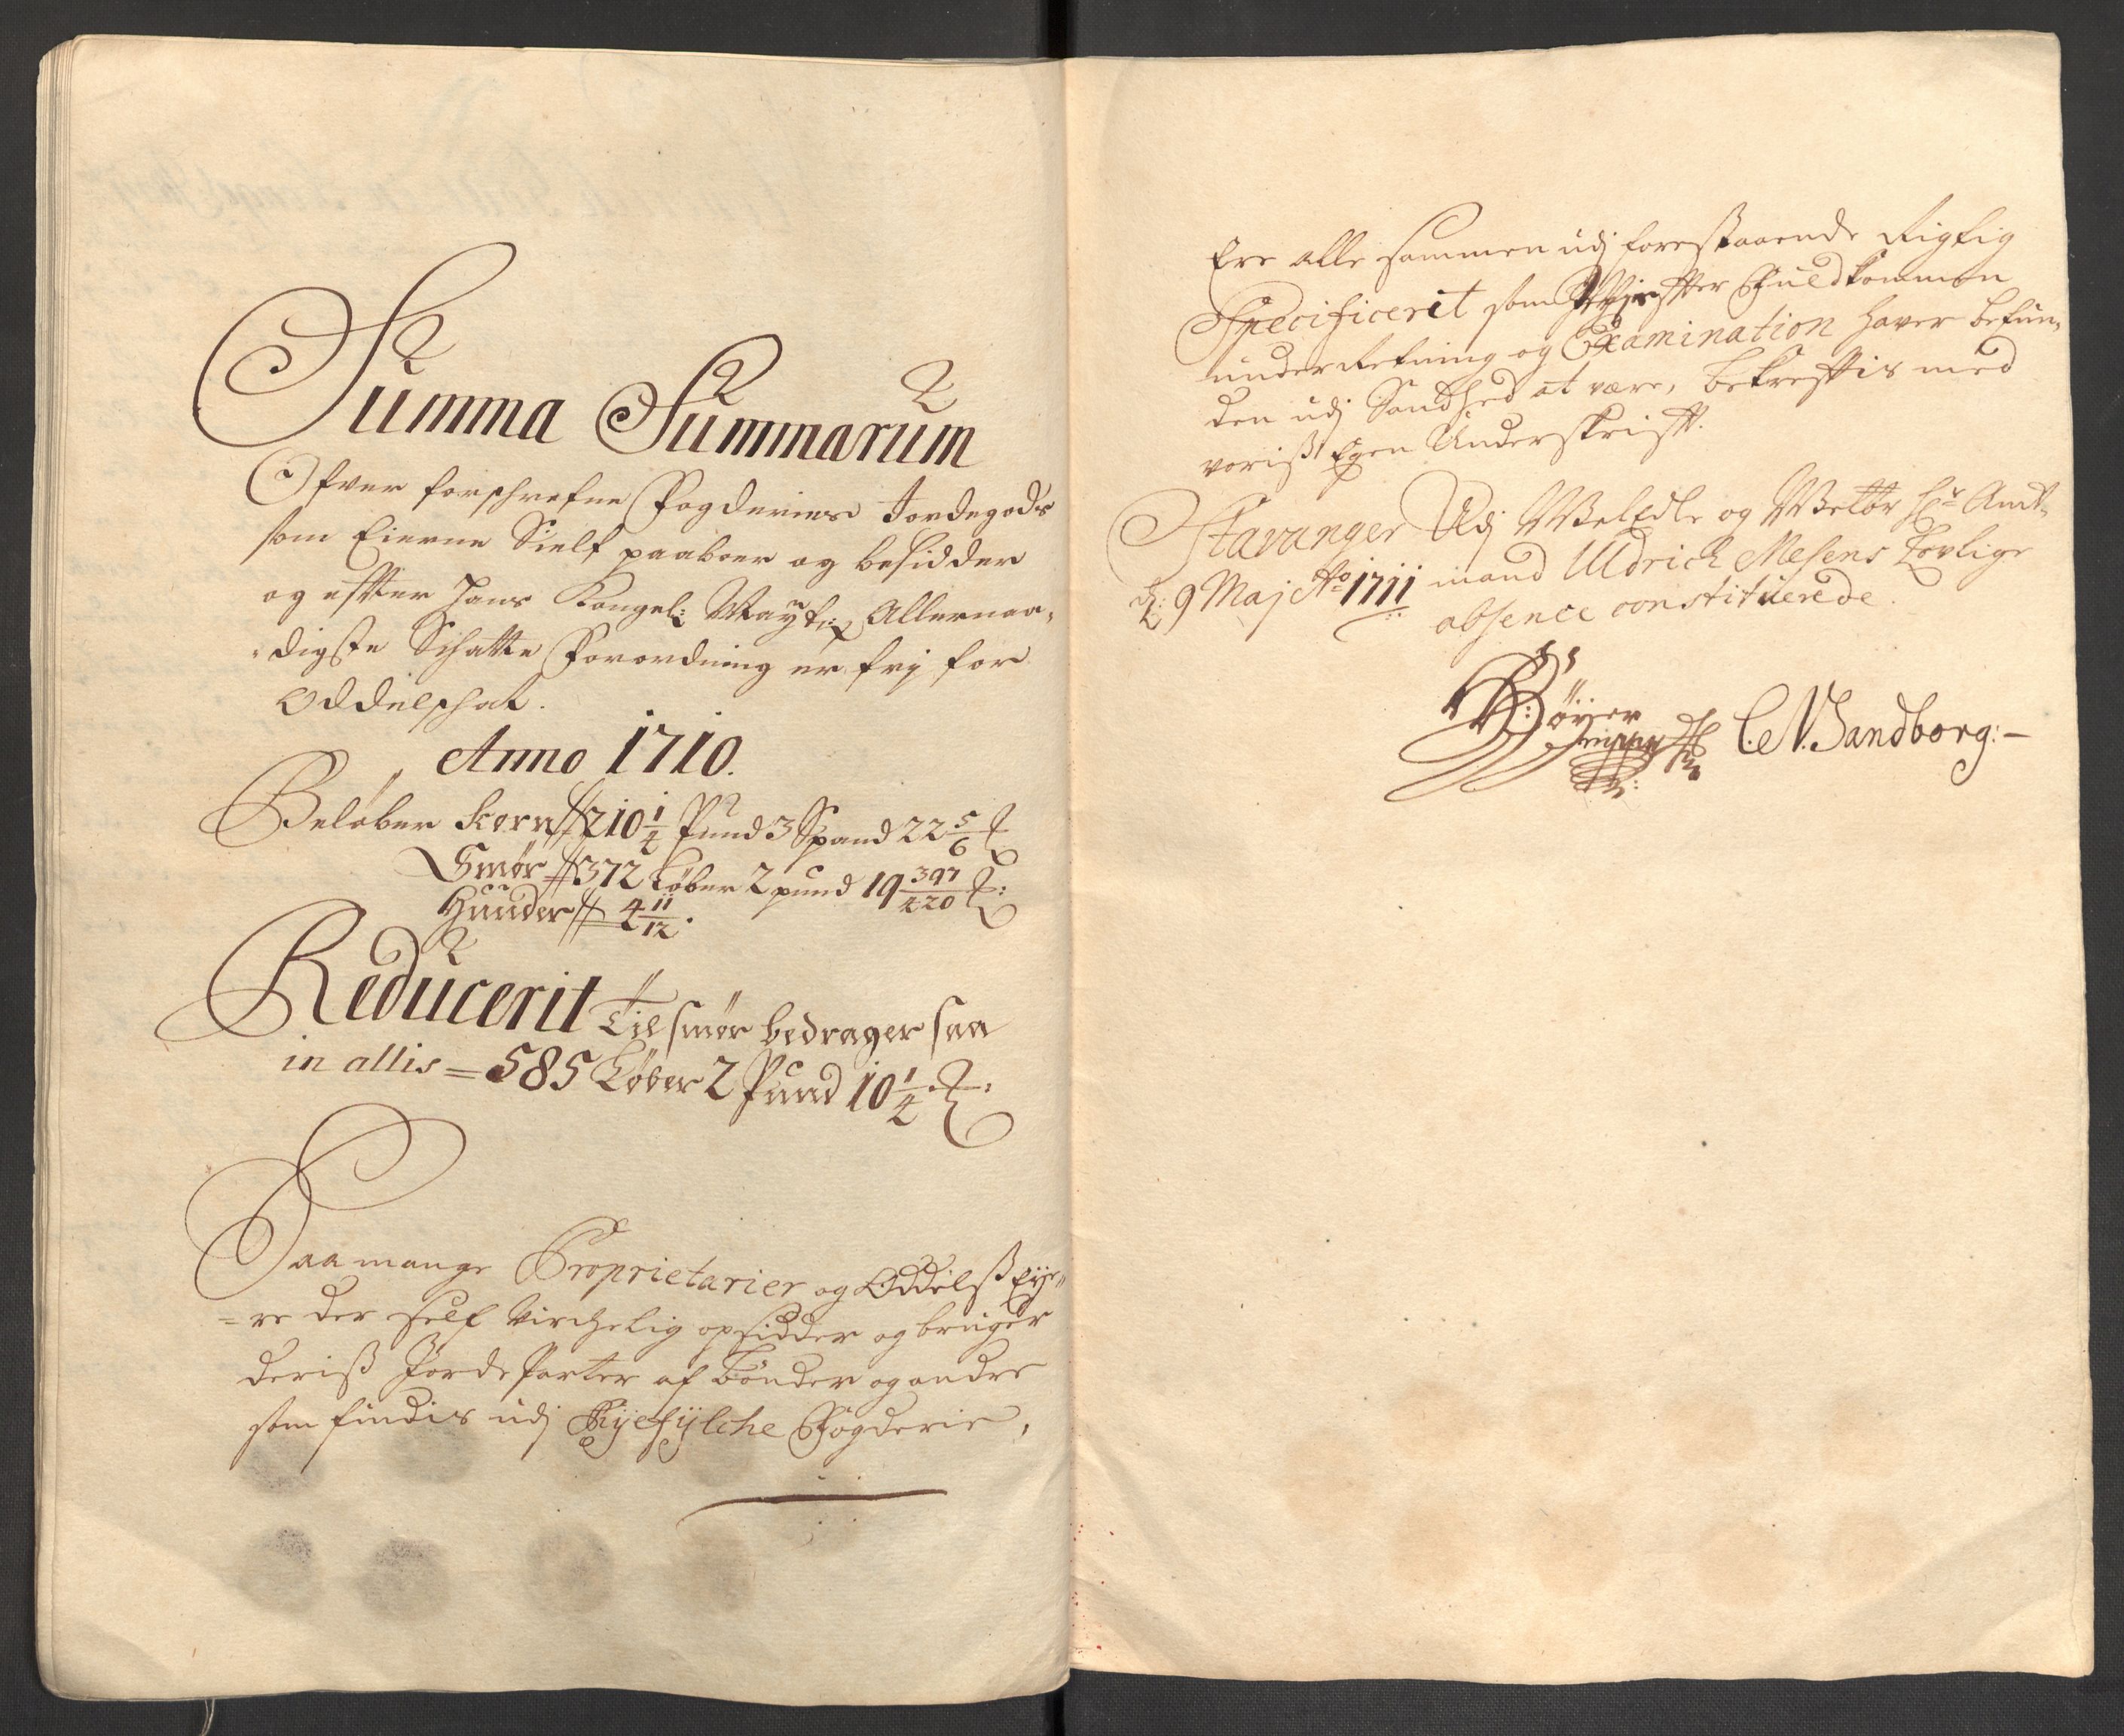 Summa Summarum
Ofver forschrefne Fogderies Jordegods
som Eierne Sielf paaboer og besidder
og effter Hans Kongel: Mayts: Allernaa-
digste Schatte Forordning er frj for
Oddelschat.
Anno 1710.
Beløber Korn // 210 1/4 Pund 3 Spand 22 5/6 ℔
Smør // 372 Løber 2 pund 19 397/420 ℔:
Huuder // 4 11/12.
Reducerit Til smør bedrager saa
in allis = 585 Løber 2 Pund 10 1/4 ℔:
Saa mange Proprietarier og Oddelsß Eye-
re der self virchelig opsidder og bruger
deriß Jorde Parter af Bønder og andre
som findis udj Ryefylche Fogderie,
Ere alle sammen udj forestaaende Rigtig
Specificerit som Wj effter Fuldkommen
underRetning og Examination haver befun-
den udj Sandhed at være, bekreftis med
voriß Egen Underskrifft.
Stavanger Udj WelEdle og Welbr Hr Amt-
d: 9 Maj Ao 1711 mand Uldrich Mesens Lovlige
absence constituerede.
Bøyer
C. N. Sandborg:-